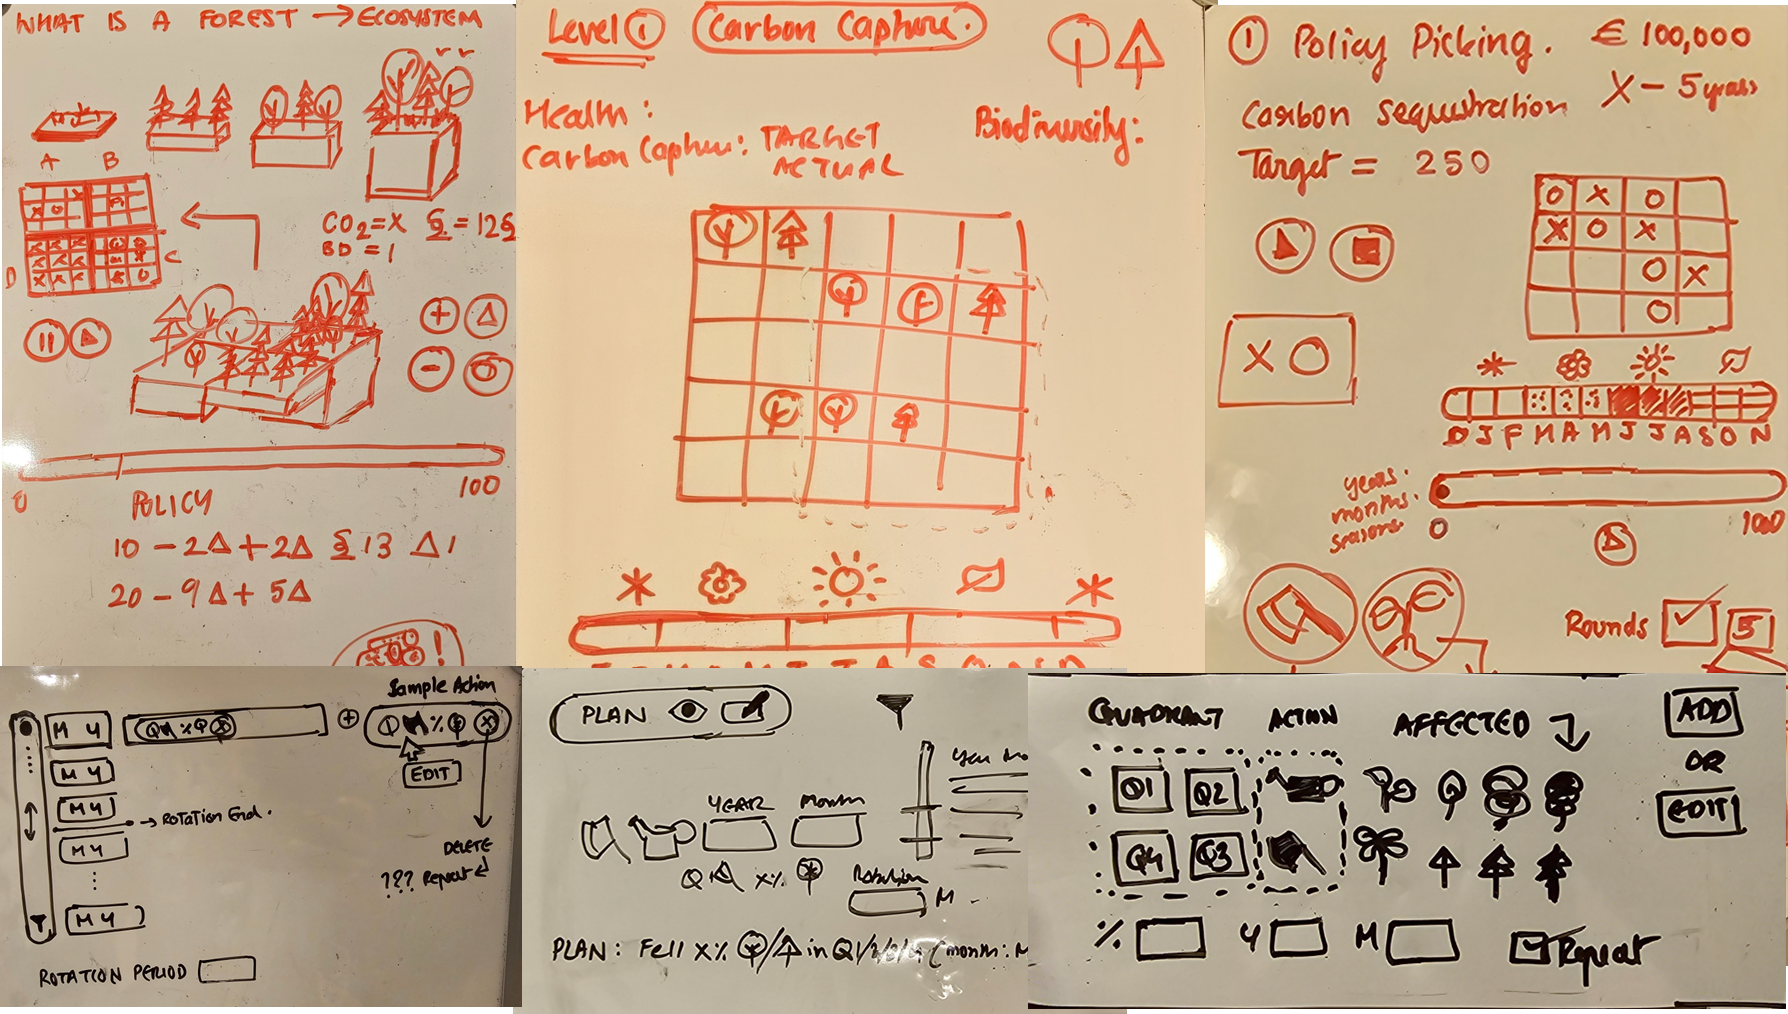 WHAT IS A FOREST → ECOSYSTEM
A B
D C
CO2 = X § = 12§
BD = 1
+
-
0 100
POLICY
10 - 2△ + 2△ § 13 △1
20 - 9△ + 5△
!
Level ① Carbon Capture.
Health:
Carbon Capture: TARGET
ACTUAL
Biodiversity:
① Policy Picking. € 100,000
X - 5 years
Carbon sequestration
Target = 250
O X O
X O X
O X
O
X O
D J F M A M J J A S O N
years.
months.
seasons.
0 1000
Rounds 5
Sample Action
M Y Q % X + Q % X
M Y EDIT
M Y
→ Rotation End.
M Y
DELETE
??? Repeat
M Y
ROTATION PERIOD
PLAN
YEAR Month
Q X%
Rotation
M
PLAN: Fell X% / in Q1/2/3/4 (month: M
QUADRANT ACTION AFFECTED
ADD
OR
EDIT
Q1 Q2
Q4 Q3
% Y M Repeat